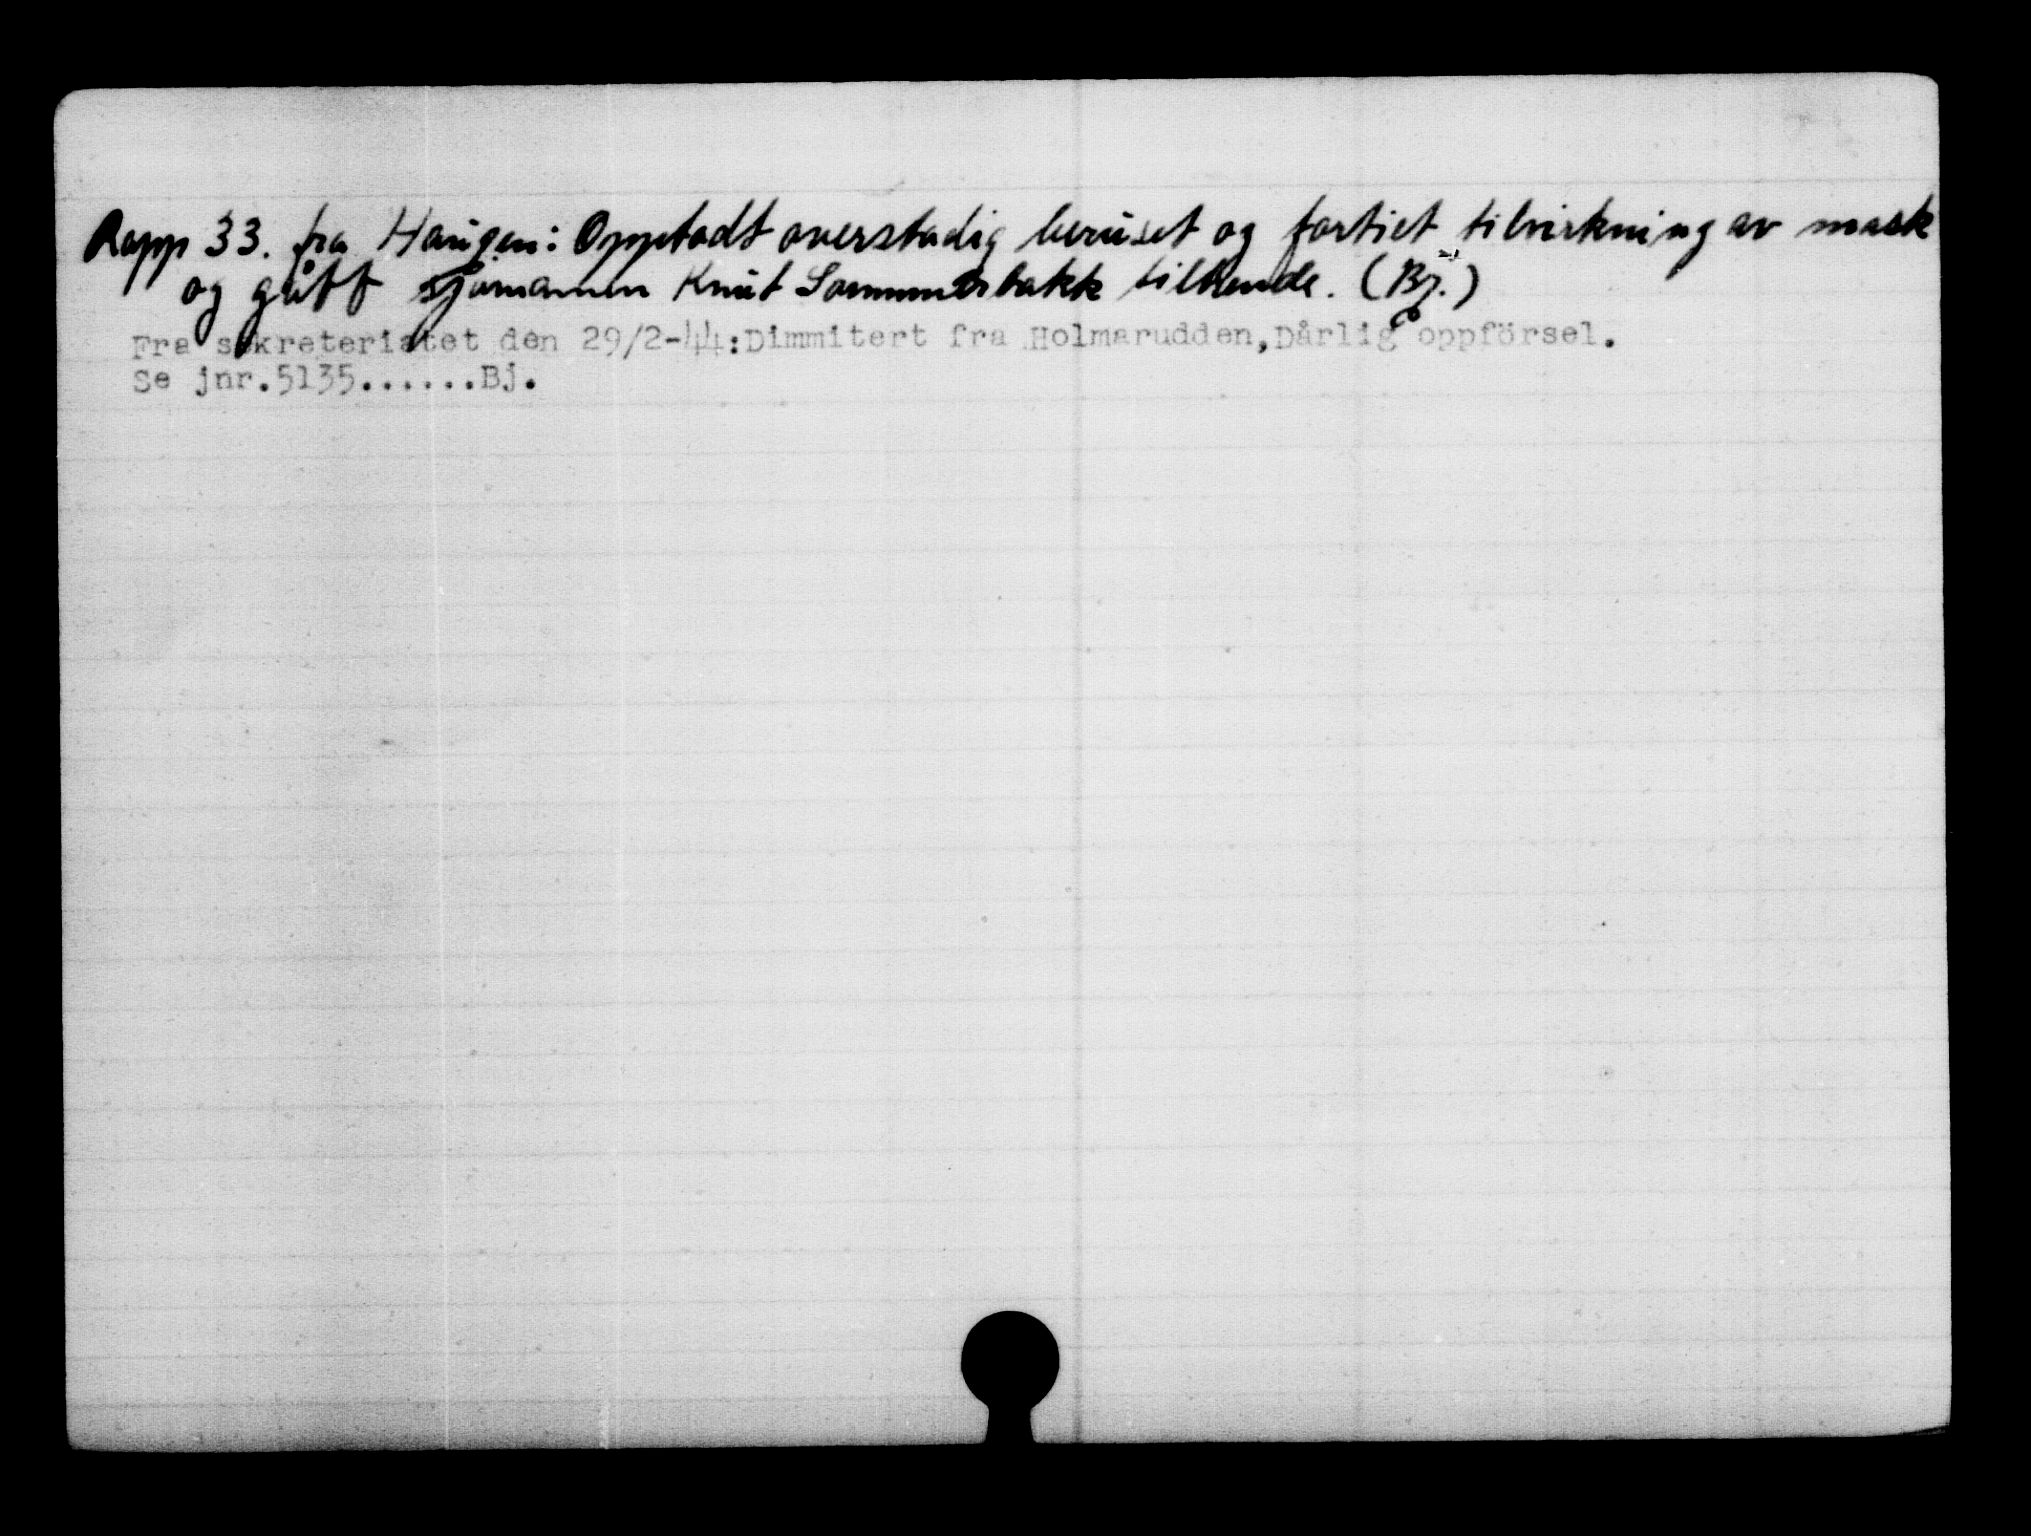 Rapp 33. fra Haugen: Opptadt overstadig beruset og fortiet tilvirkning av mask
og gått sjömannen Knut Sommerbakk tilhende. (Bj.)
Fra sekreteriatet den 29/2-44:Dimmitert fra Holmarudden,Dårlig oppförsel.
Se jnr.5135......Bj.